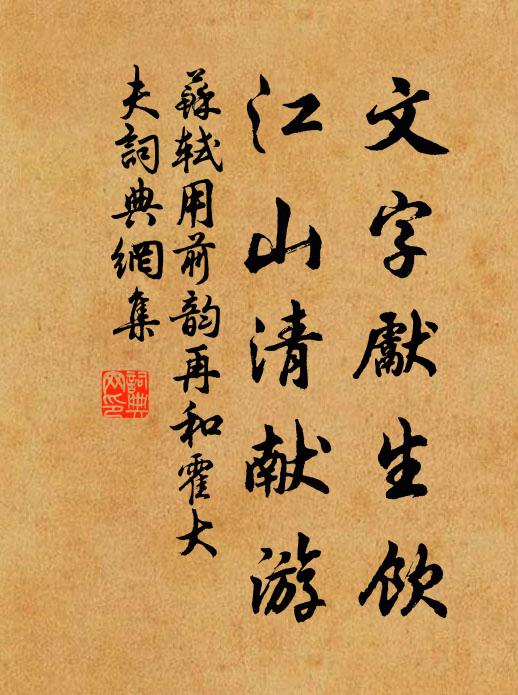 文字獻生飲
江山清献游
蘇軾用前韵再和霍大
夫詞典網集
詞典
网印